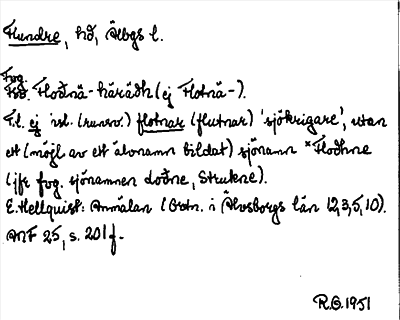 Flundre, hd, Älbgs l.
Fvg.
Fsv. Floðnä-härädh (ej Flotnä-).
T.l. ej isl. (runsv.) flotnar (flutnar) 'sjökrigare', utan
ett (möjl av ett älvnamn bildat) sjönamn *Floðhne
(jfr fvg. sjönamnen Loðne, Strukne).
E. Hellquist: Anmälan (Ortn. i Älvsborgs län 12,3,5,10).
ANF 25, s. 201f.
R.G. 1951